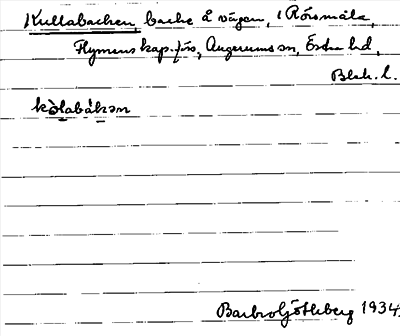 Kullabacken, backe å vägen, i Rörsmåla,
Flymens kap.förs, Augerums sn, Östra hd,
Blek. l.
kòlabàkən
Barbro Götheberg 1934.